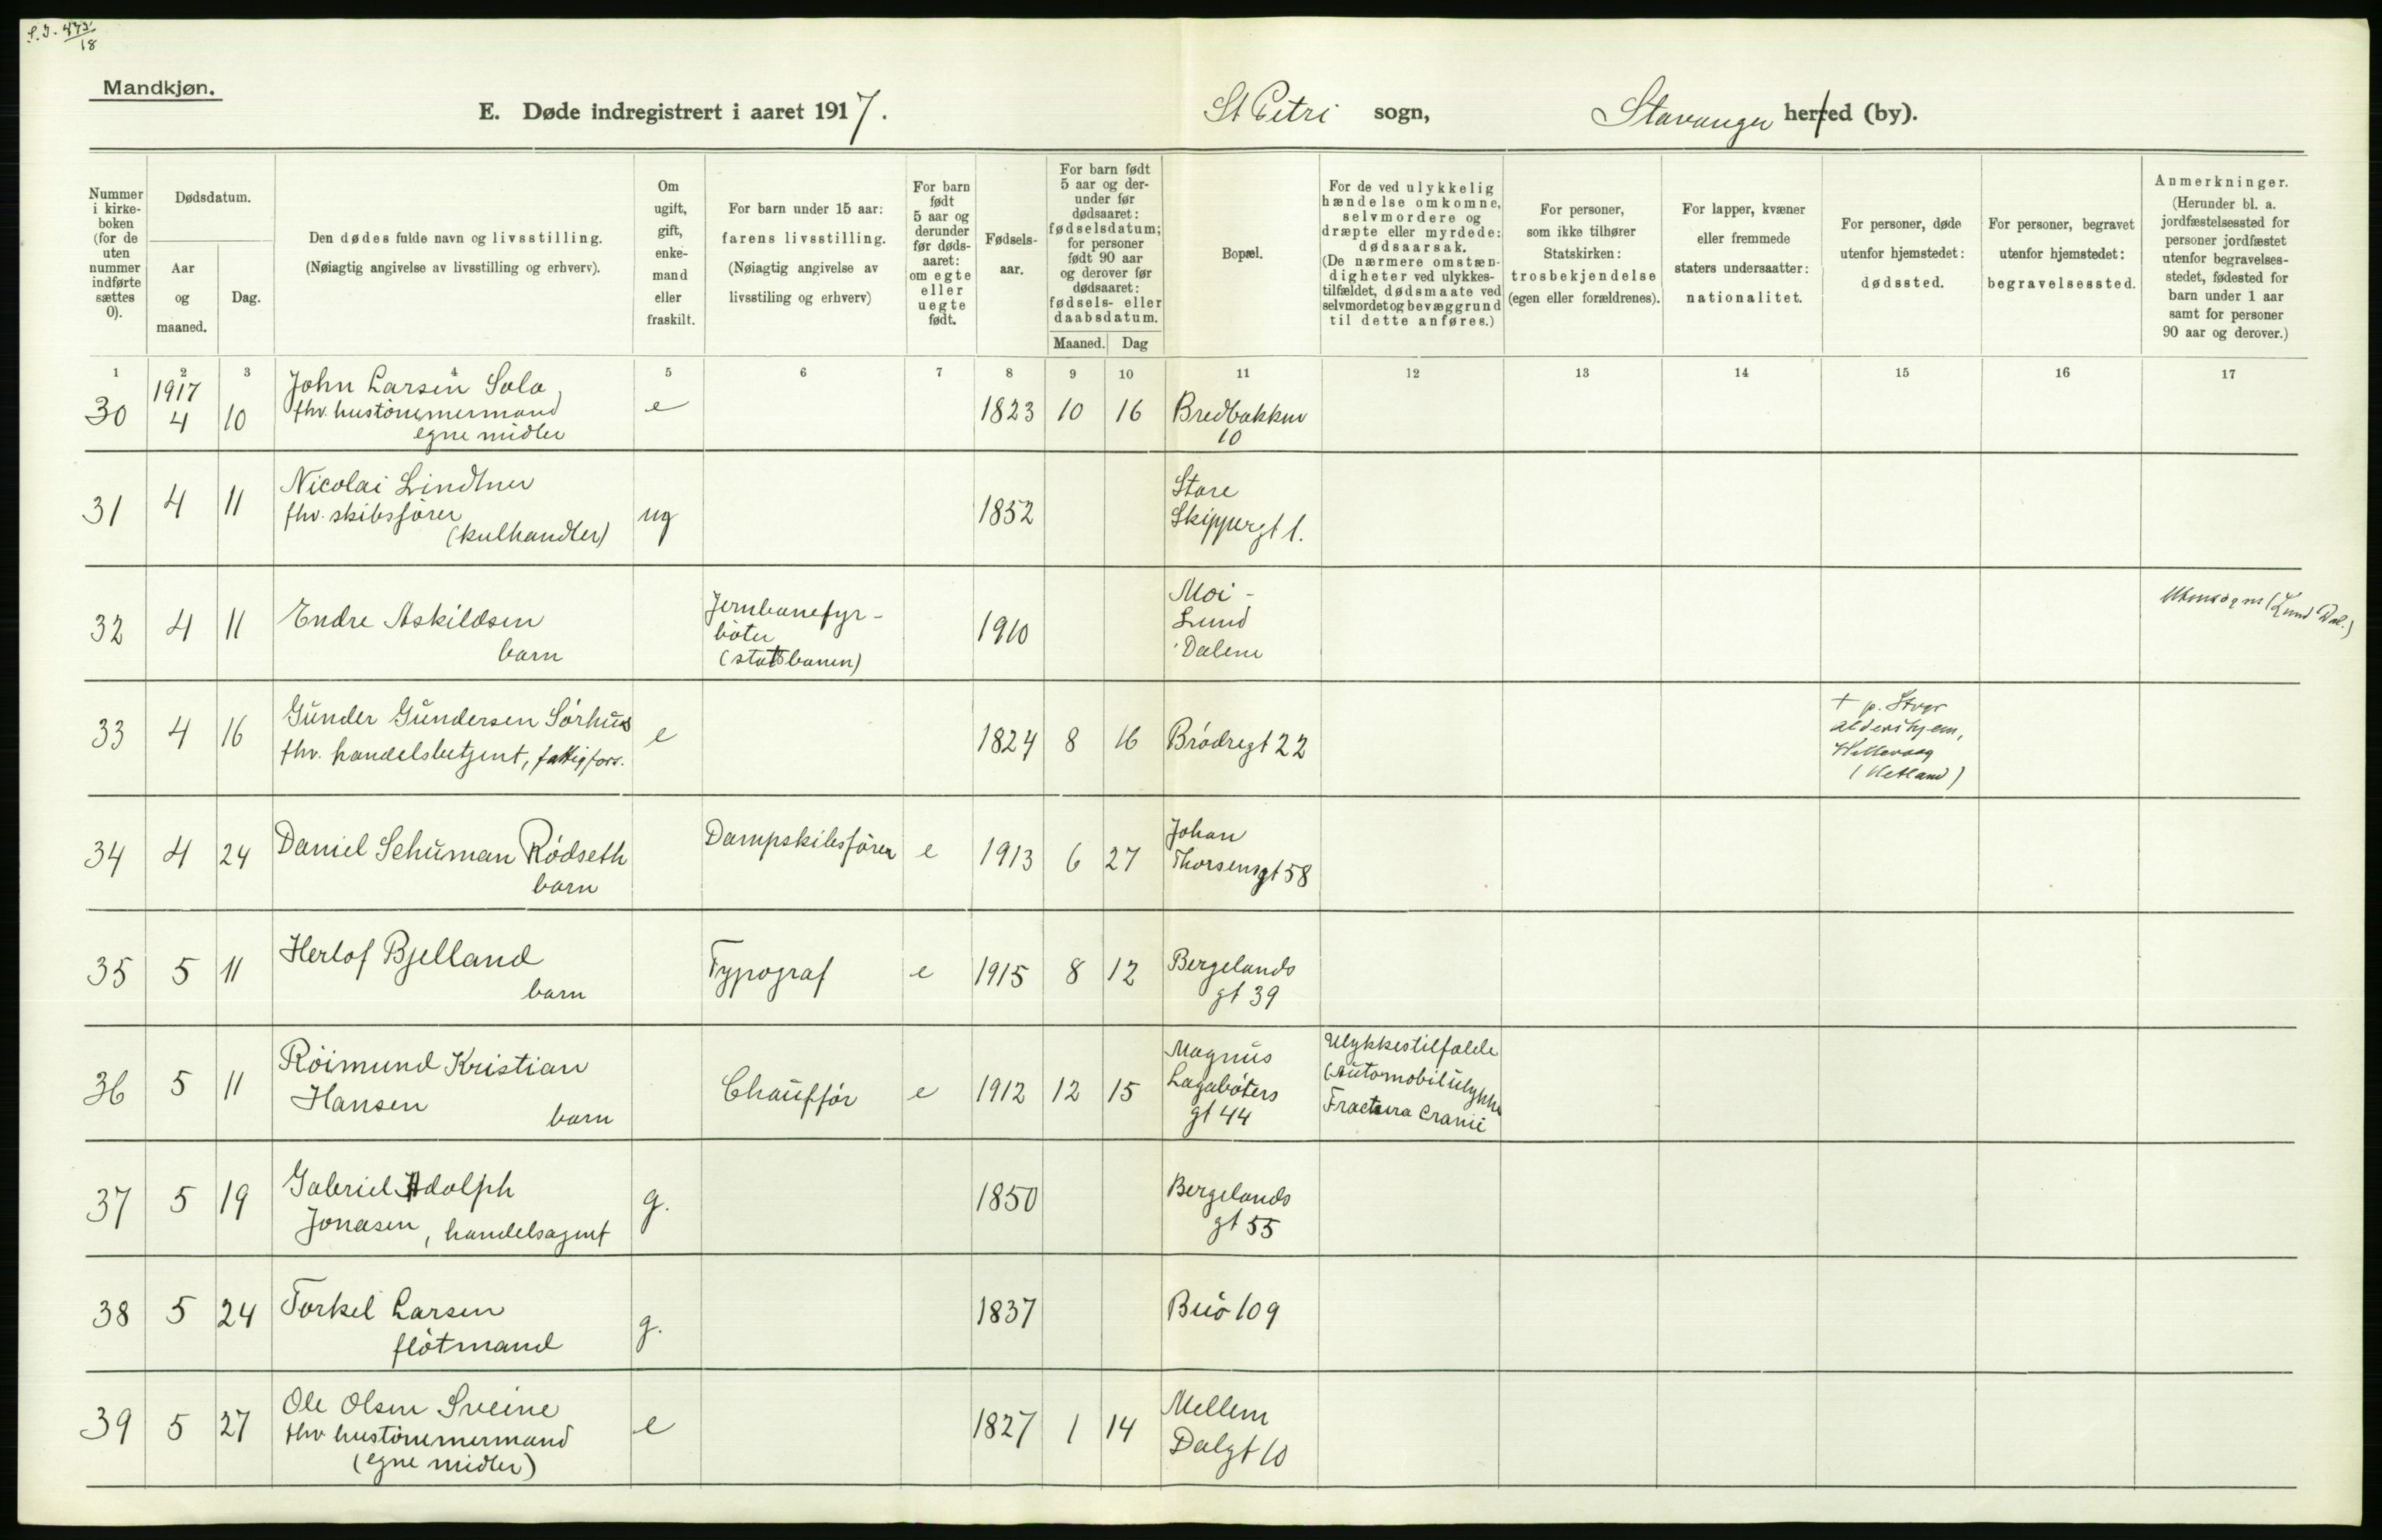 Mandkjøn.
E. Døde indregistrert i aaret 1917.
St Petri sogn,
Stavanger herred (by).
Nummer
i kirke-
boken
(for de
uten
nummer
indførte
sættes
0).
Dødsdatum.
Aar
og
maaned.
Dag.
Den dødes fulde navn og livsstilling.
(Nøiagtig angivelse av livsstilling og erhverv).
Om
ugift,
gift,
enke-
mand
eller
fraskilt.
For barn under 15 aar:
farens livsstilling.
(Nøiagtig angivelse av
livsstiling og erhverv)
For barn
født
5 aar og
derunder
før døds-
aaret:
om egte
eller
uegte
født.
Fødsels-
aar.
For barn født
5 aar og der-
under før
dødsaaret:
fødselsdatum;
for personer
født 90 aar
og derover før
dødsaaret:
fødsels- eller
daabsdatum.
Maaned. Dag
Bopæl.
For de ved ulykkelig
hændelse omkomne,
selvmordere og
dræpte eller myrdede:
dødsaarsak.
(De nærmere omstæn-
digheter ved ulykkes-
tilfældet, dødsmaate ved
selvmordet og bevæggrund
til dette anføres.)
For personer,
som ikke tilhører
Statskirken:
trosbekjendelse
(egen eller forældrenes).
For lapper, kvæner
eller fremmede
staters undersaatter:
nationalitet.
For personer, døde
utenfor hjemstedet:
dødssted.
For personer, begravet
utenfor hjemstedet:
begravelsessted.
Anmerkninger.
(Herunder bl. a.
jordfæstelsessted for
personer jordfæstet
utenfor begravelses-
stedet, fødested for
barn under 1 aar
samt for personer
90 aar og derover.)
1 2 3 4 5 6 7 8 9 10 11 12 13 14 15 16 17
1917
30 4 10
John Larsen Sola,
fhv. hustömmermand
egne midler
e 1823 10 16
Bredbakken
10
31 4 11
Nicolai Lindtner
fhv. skibsförer
(kulhandler)
ug 1852
Store
Skippergt 1.
32 4 11
Endre Askildsen
barn
Jernbanefyr-
böter
(statsbanen)
1910
Moi -
Lund
Dalene
(Lund Dal.)
33 4 16
Gunder Gundersen Sörhus
fhv. handelsbetjent, fattigfors.
e 1824 8 16 Brödregt 22
+ p. Stvgr
aldershjem,
(Hetland)
34 4 24
Daniel Schuman Rödseth
barn
Dampskibsförer e 1913 6 27
Johan
Thorsensgt 58
35 5 11
Herlof Bjelland
barn
Typograf e 1915 8 12
Bergelands
gt 39
36 5 11
Röimund Kristian
Hansen barn
Chaufför e 1912 12 15
Magnus
Lagaböters
gt 44
Ulykkestilfælde
(Automobilulykke
Fractura Cranii
37 5 19
Gabriel Adolph
Jonasen, handelsagent
g. 1850
Bergelands
gt 55
38 5 24
Torkel Larsen
flötmand
g. 1837 Buö 109
39 5 27
Ole Olsen Sveine
fhv hustömmermand
(egne midler)
e 1827 1 14
Mellem
Dalgt 10